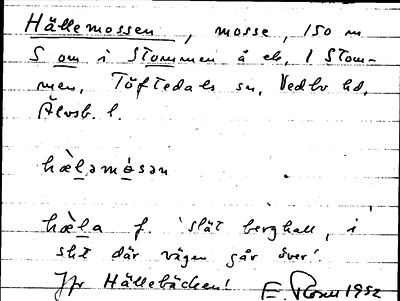 Hällemossen, mosse, 150 m
S om i Stommen å ek, 1 Stom-
men, Töftedals sn, Vedbo hd,
Älvsb. l.
hæ̀lamòsən
hæ̀la f. 'slät berghall, i
sht där vägen går över'.
Jfr Hällebäcken! E. 1932